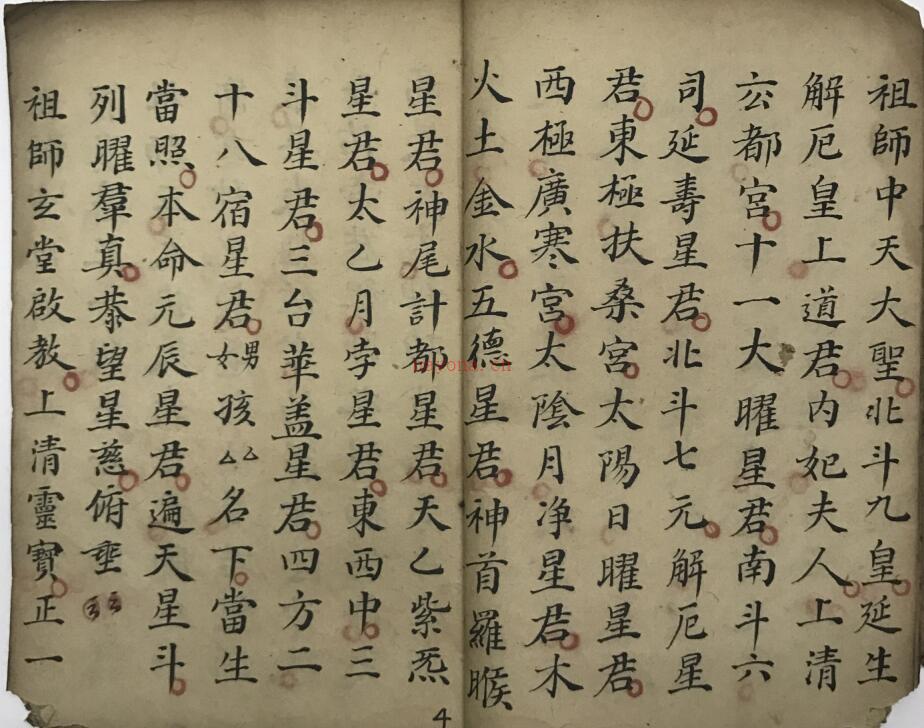 祖師中天大聖北斗九皇延生
解厄皇上道君内妃夫人上清
六都宮十一大曜星君南斗六
司延壽星君北斗七元解厄星
君東極扶桑宮太陽日曜星君
西極廣寒宮太陰月净星君木
火土金水五德星君神首羅睺
星君神尾計都星君天乙紫炁
星君太乙月孛星君東西中三
斗星君三台華盖星君四方二
十八宿星君男女孩厶乙厶名下當生
當照本命元辰星君遍天星斗
列曜羣真恭望星慈俯垂云云
祖師玄堂啟教上清靈寶正一
4
nayona.cn